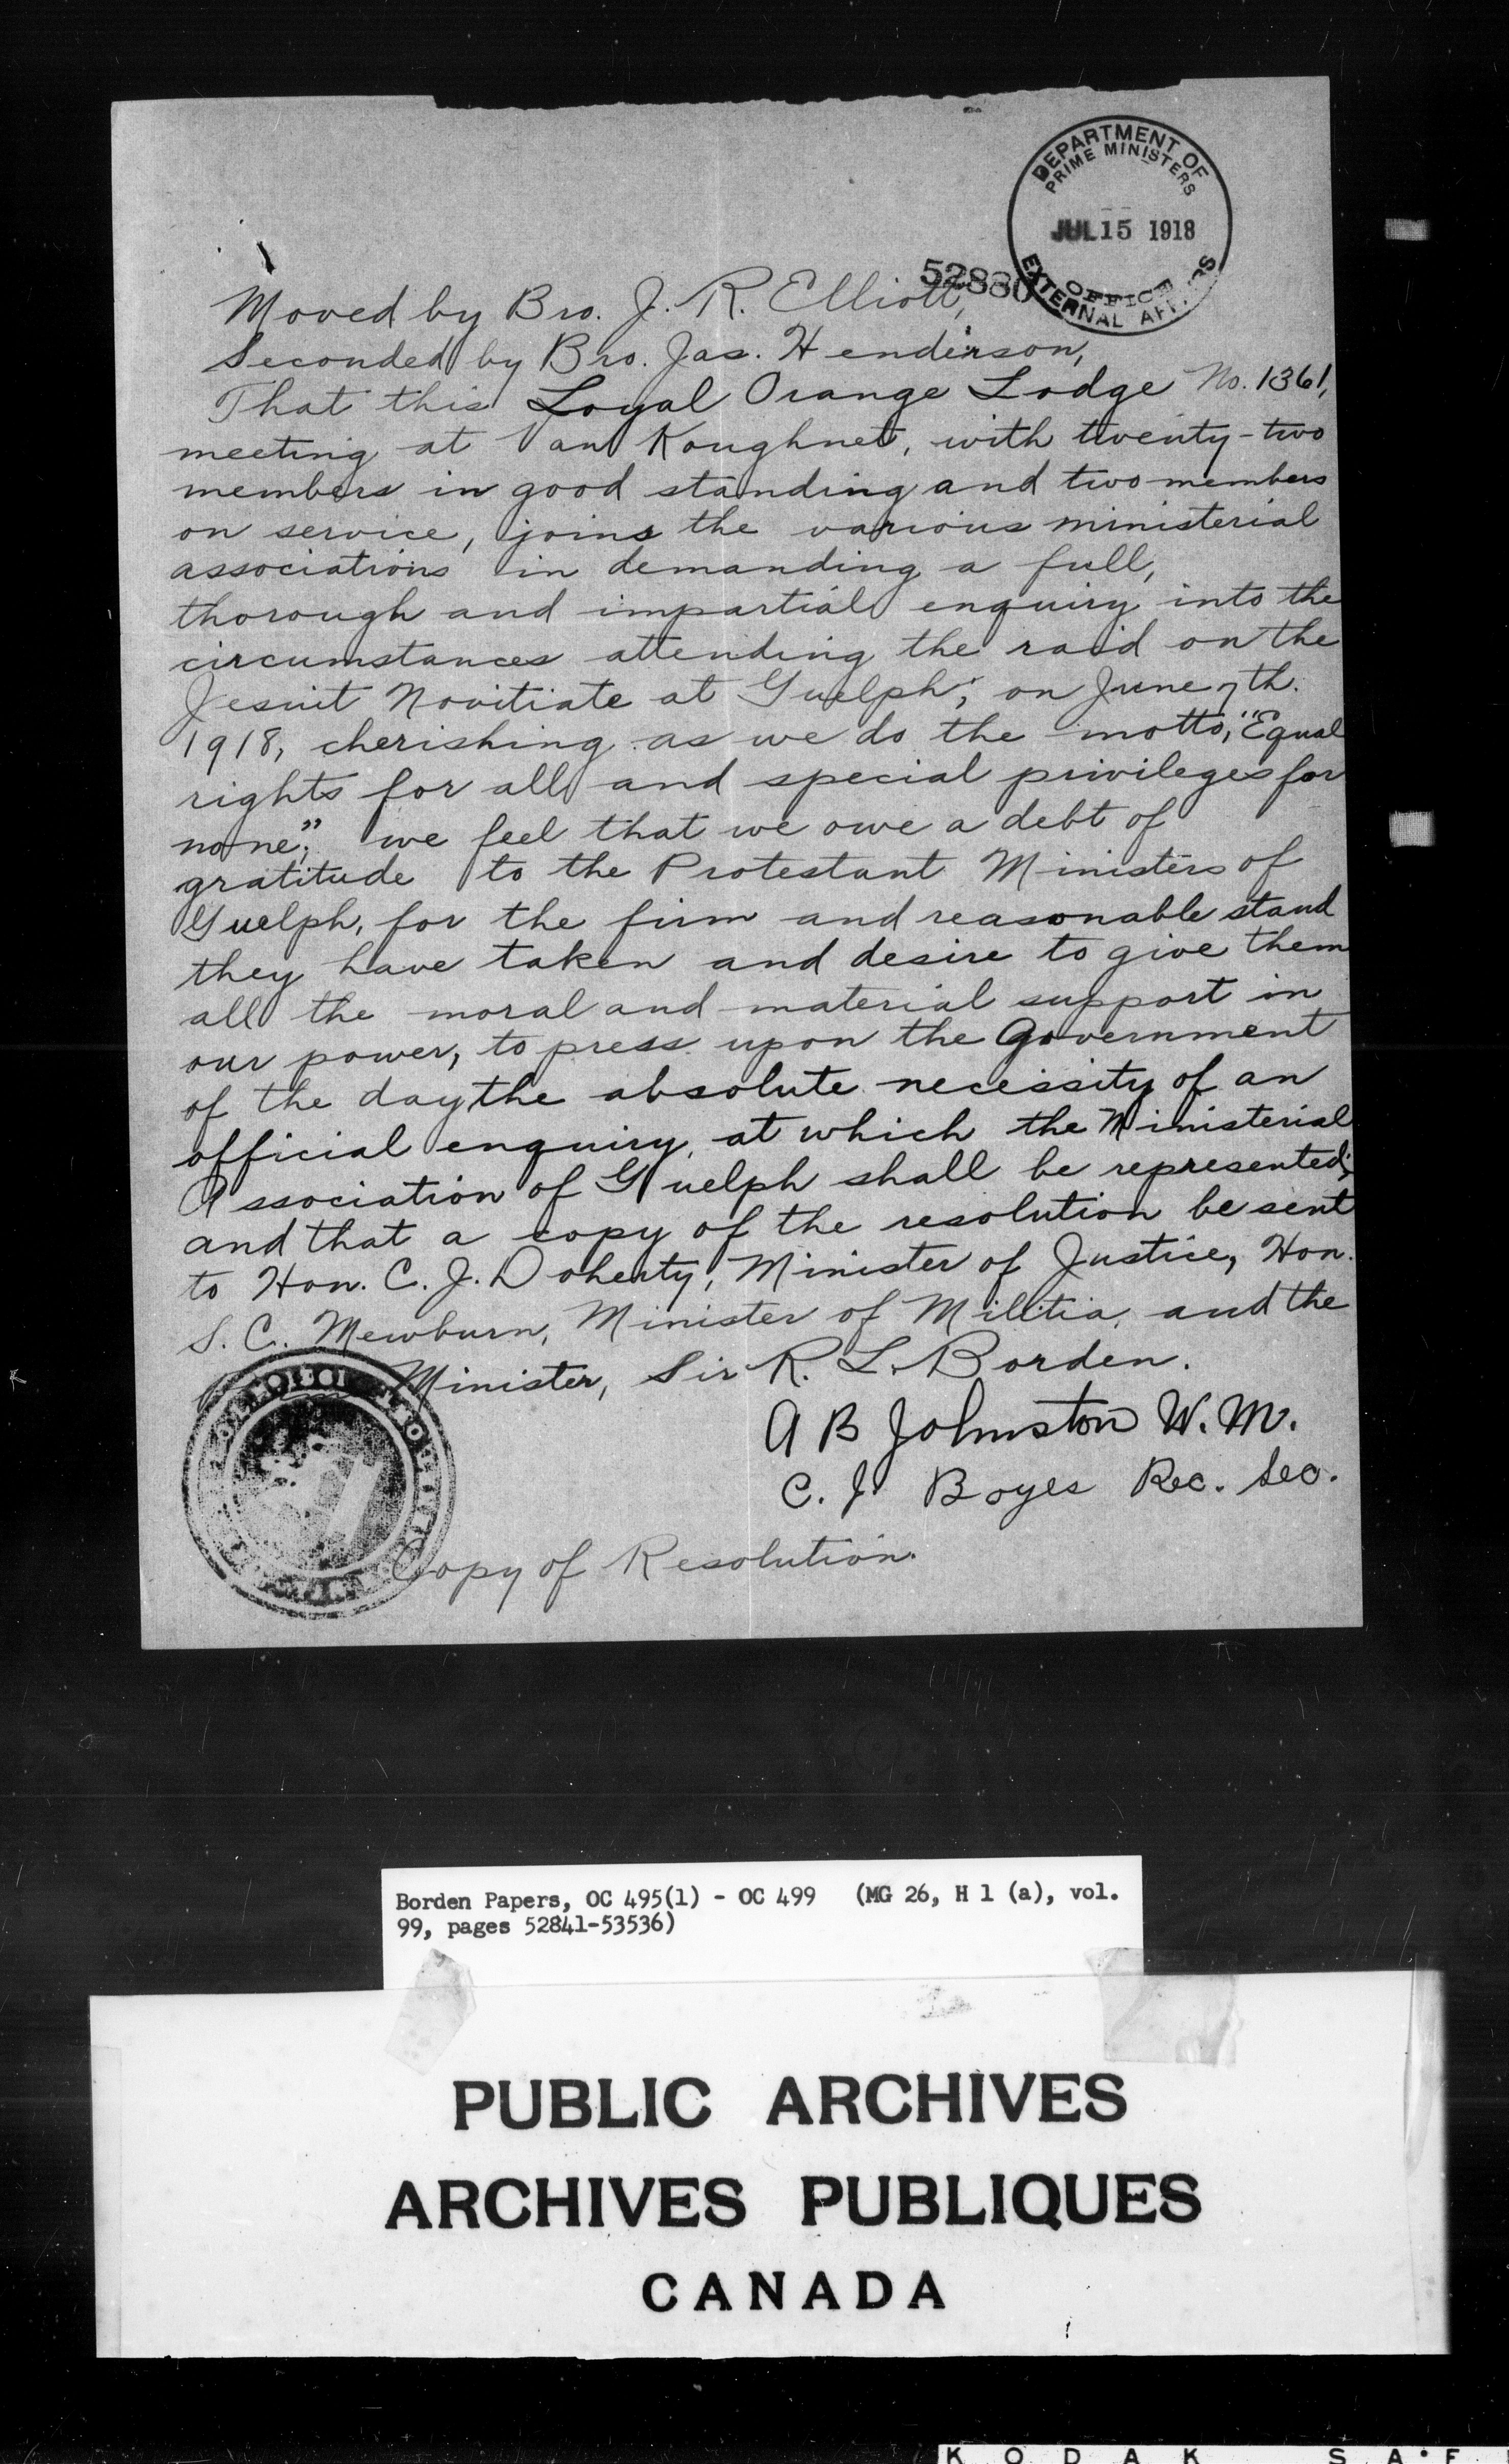 DEPARTMENT OF
PRIME MINISTERS
JUL 15 1918
OFFICE
EXTERNAL AFFAIRS
52880
Moved by Bro. J. R. Elliott,
Seconded by Bro. Jas. Henderson,
That this Loyal Orange Lodge No. 1361,
meeting at Van Koughnet, with twenty-two
members in good standing and two members
on service, joins the various ministerial
associations in demanding a full,
thorough and impartial enquiry into the
circumstances attending the raid on the
Jesuit Novitiate at Guelph; on June 7th.
1918, cherishing as we do the motto, "Equal
rights for all and special privileges for
none"; we feel that we owe a debt of
gratitude to the Protestant Ministers of
Guelph, for the firm and reasonable stand
they have taken and desire to give them
all the moral and material support in
our power, to press upon the Government
of the day the absolute necessity of an
official enquiry, at which the Ministerial
Association of Guelph shall be represented;
and that a copy of the resolution be sent
to Hon. C. J. Doherty, Minister of Justice, Hon.
S. C. Mewburn, Minister of Militia, and the
Minister, Sir R. L. Borden.
A B Johnston W. M.
C. J. Boyes Rec. Sec.
Copy of Resolution.
Borden Papers, OC 495(1) - OC 499 (MG 26, H 1 (a), vol.
99, pages 52841-53536)
PUBLIC ARCHIVES
ARCHIVES PUBLIQUES
CANADA
KODAK SA·F